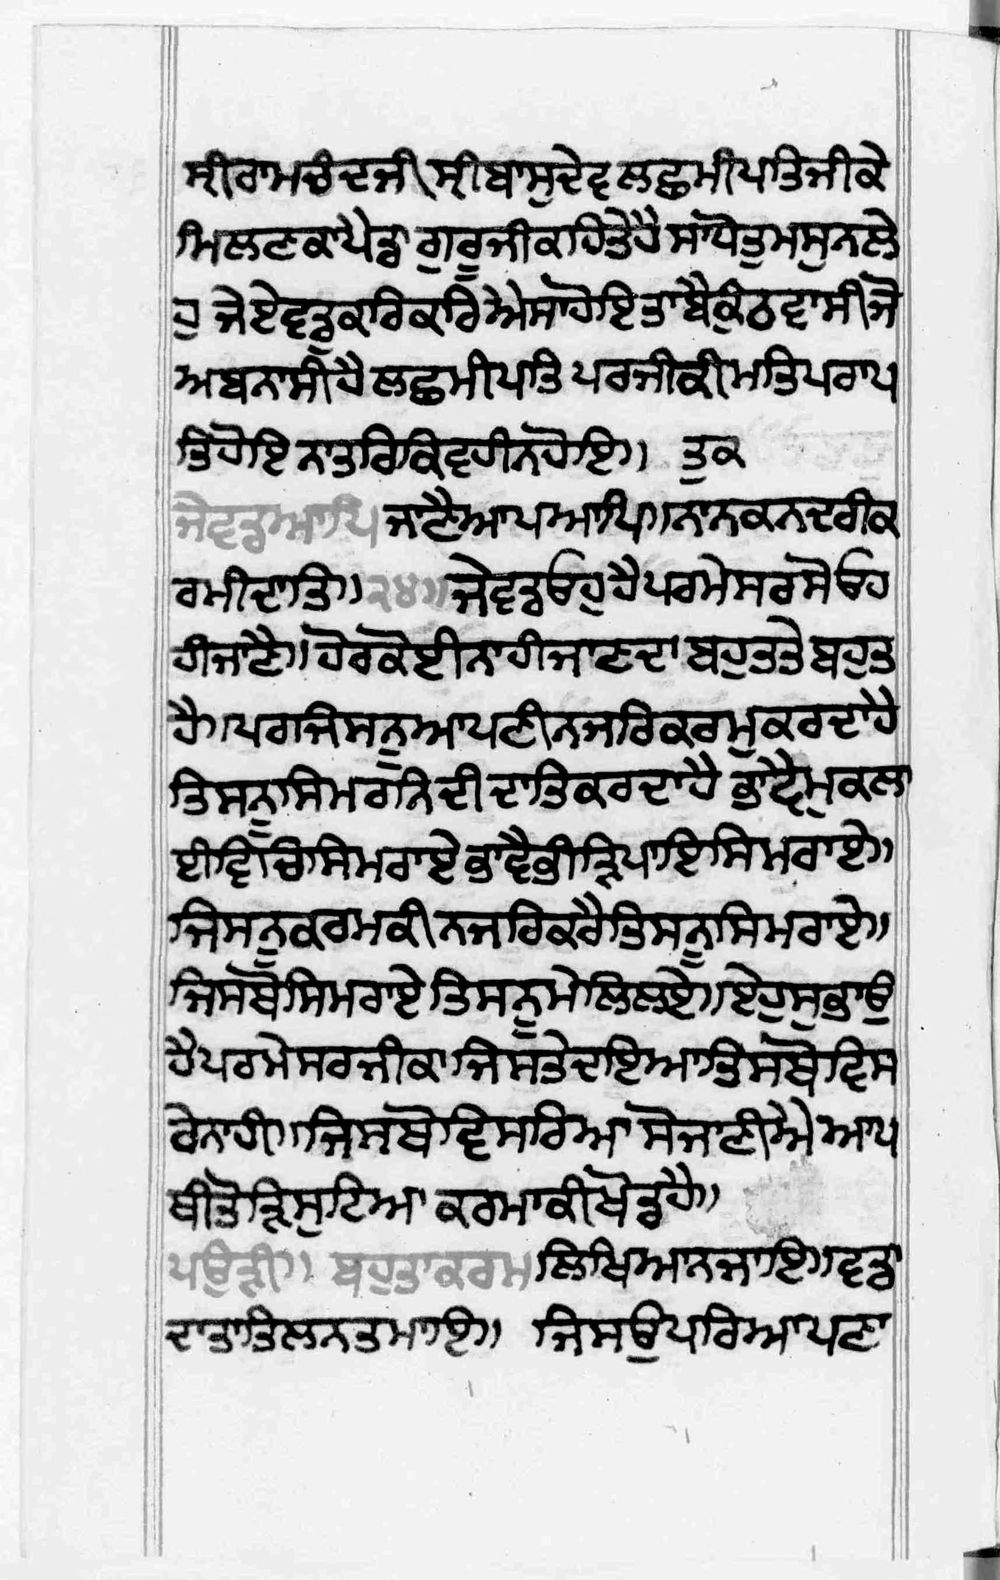 ਸ੍ਰੀ ਰਾਮਚੰਦ ਜੀ ਸ੍ਰੀ ਬਾਸੁਦੇਵ ਲਛਮੀ ਪਤਿ ਜੀ ਕੇ
ਮਿਲਣ ਕਾ ਪੈਡਾ ਗੁਰੂ ਜੀ ਕਹਿਤੇ ਹੈ ਸਾਧੋ ਤੁਮ ਸੁਨ ਲੇ
ਹੁ ਜੇ ਏਵਡੁ ਕਾਰਿ ਕਰਿ ਐਸਾ ਹੋਇ ਤਾ ਬੈਕੁੰਠ ਵਾਸੀ ਜੋ
ਅਬਨਾਸੀ ਹੈ ਲਛਮੀ ਪਤਿ ਪਰ ਜੀ ਕੀ ਮਤਿ ਪਰਾਪ
ਤਿ ਹੋਇ ਨਾਤਰਿ ਕਿਵਹੀ ਨ ਹੋਇ॥ ਤੁਕ
ਜੇਵਡੁ ਆਪਿ ਜਾਣੈ ਆਪ ਆਪਿ॥ ਨਾਨਕ ਨਦਰੀ ਕ
ਰਮੀ ਦਾਤਿ॥੨੪॥ ਜੇਵਡੁ ਓਹੁ ਹੈ ਪਰਮੇਸਰ ਸੋ ਓਹ
ਹੀ ਜਾਣੈ॥ ਹੋਰ ਕੋਈ ਨਾਹੀ ਜਾਣਦਾ ਬਹੁਤ ਤੇ ਬਹੁਤ
ਹੈ॥ ਪਰ ਜਿਸ ਨੂ ਆਪਣੀ ਨਜਰਿ ਕਰਮੁ ਕਰਦਾ ਹੈ
ਤਿਸ ਨੂ ਸਿਮਰਨਿ ਦੀ ਦਾਤਿ ਕਰਦਾ ਹੈ ਭਾਵੈ ਮੁਕਲਾ
ਈ ਵਿਚਿ ਸਿਮਰਾਏ ਭਾਵੈ ਭੀੜਿ ਪਾਇ ਸਿਮਰਾਏ॥
ਜਿਸ ਨੂ ਕਰਮ ਕੀ ਨਜਰਿ ਕਰੈ ਤਿਸ ਨੂ ਸਿਮਰਾਏ॥
ਜਿਸ ਥੋ ਸਿਮਰਾਏ ਤਿਸ ਨੂ ਮੇਲਿ ਲਏ॥ ਏਹੁ ਸੁਭਾਉ
ਹੈ ਪਰਮੇਸਰ ਜੀ ਕਾ ਜਿਸ ਤੇ ਦਇਆ ਤਿਸ ਥੋ ਵਿਸ
ਰੇ ਨਾਹੀ॥ ਜਿਸ ਥੋ ਵਿਸਰਿਆ ਸੋ ਜਾਣੀਐ ਆਪ
ਥੀ ਤੋੜਿ ਸੁਟਿਆ ਕਰਮਾ ਕੀ ਖੋਡ ਹੈ॥
ਪਉੜੀ॥ ਬਹੁਤਾ ਕਰਮ ਲਿਖਿਆ ਨ ਜਾਇ॥ ਵਡਾ
ਦਾਤਾ ਤਿਲ ਨ ਤਮਾਇ॥ ਜਿਸ ਉਪਰਿ ਆਪਣਾ